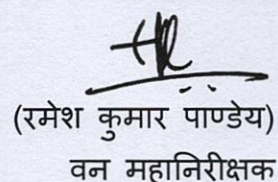 (रमेश कुमार पाण्डेय)
वन महानिरीक्षक